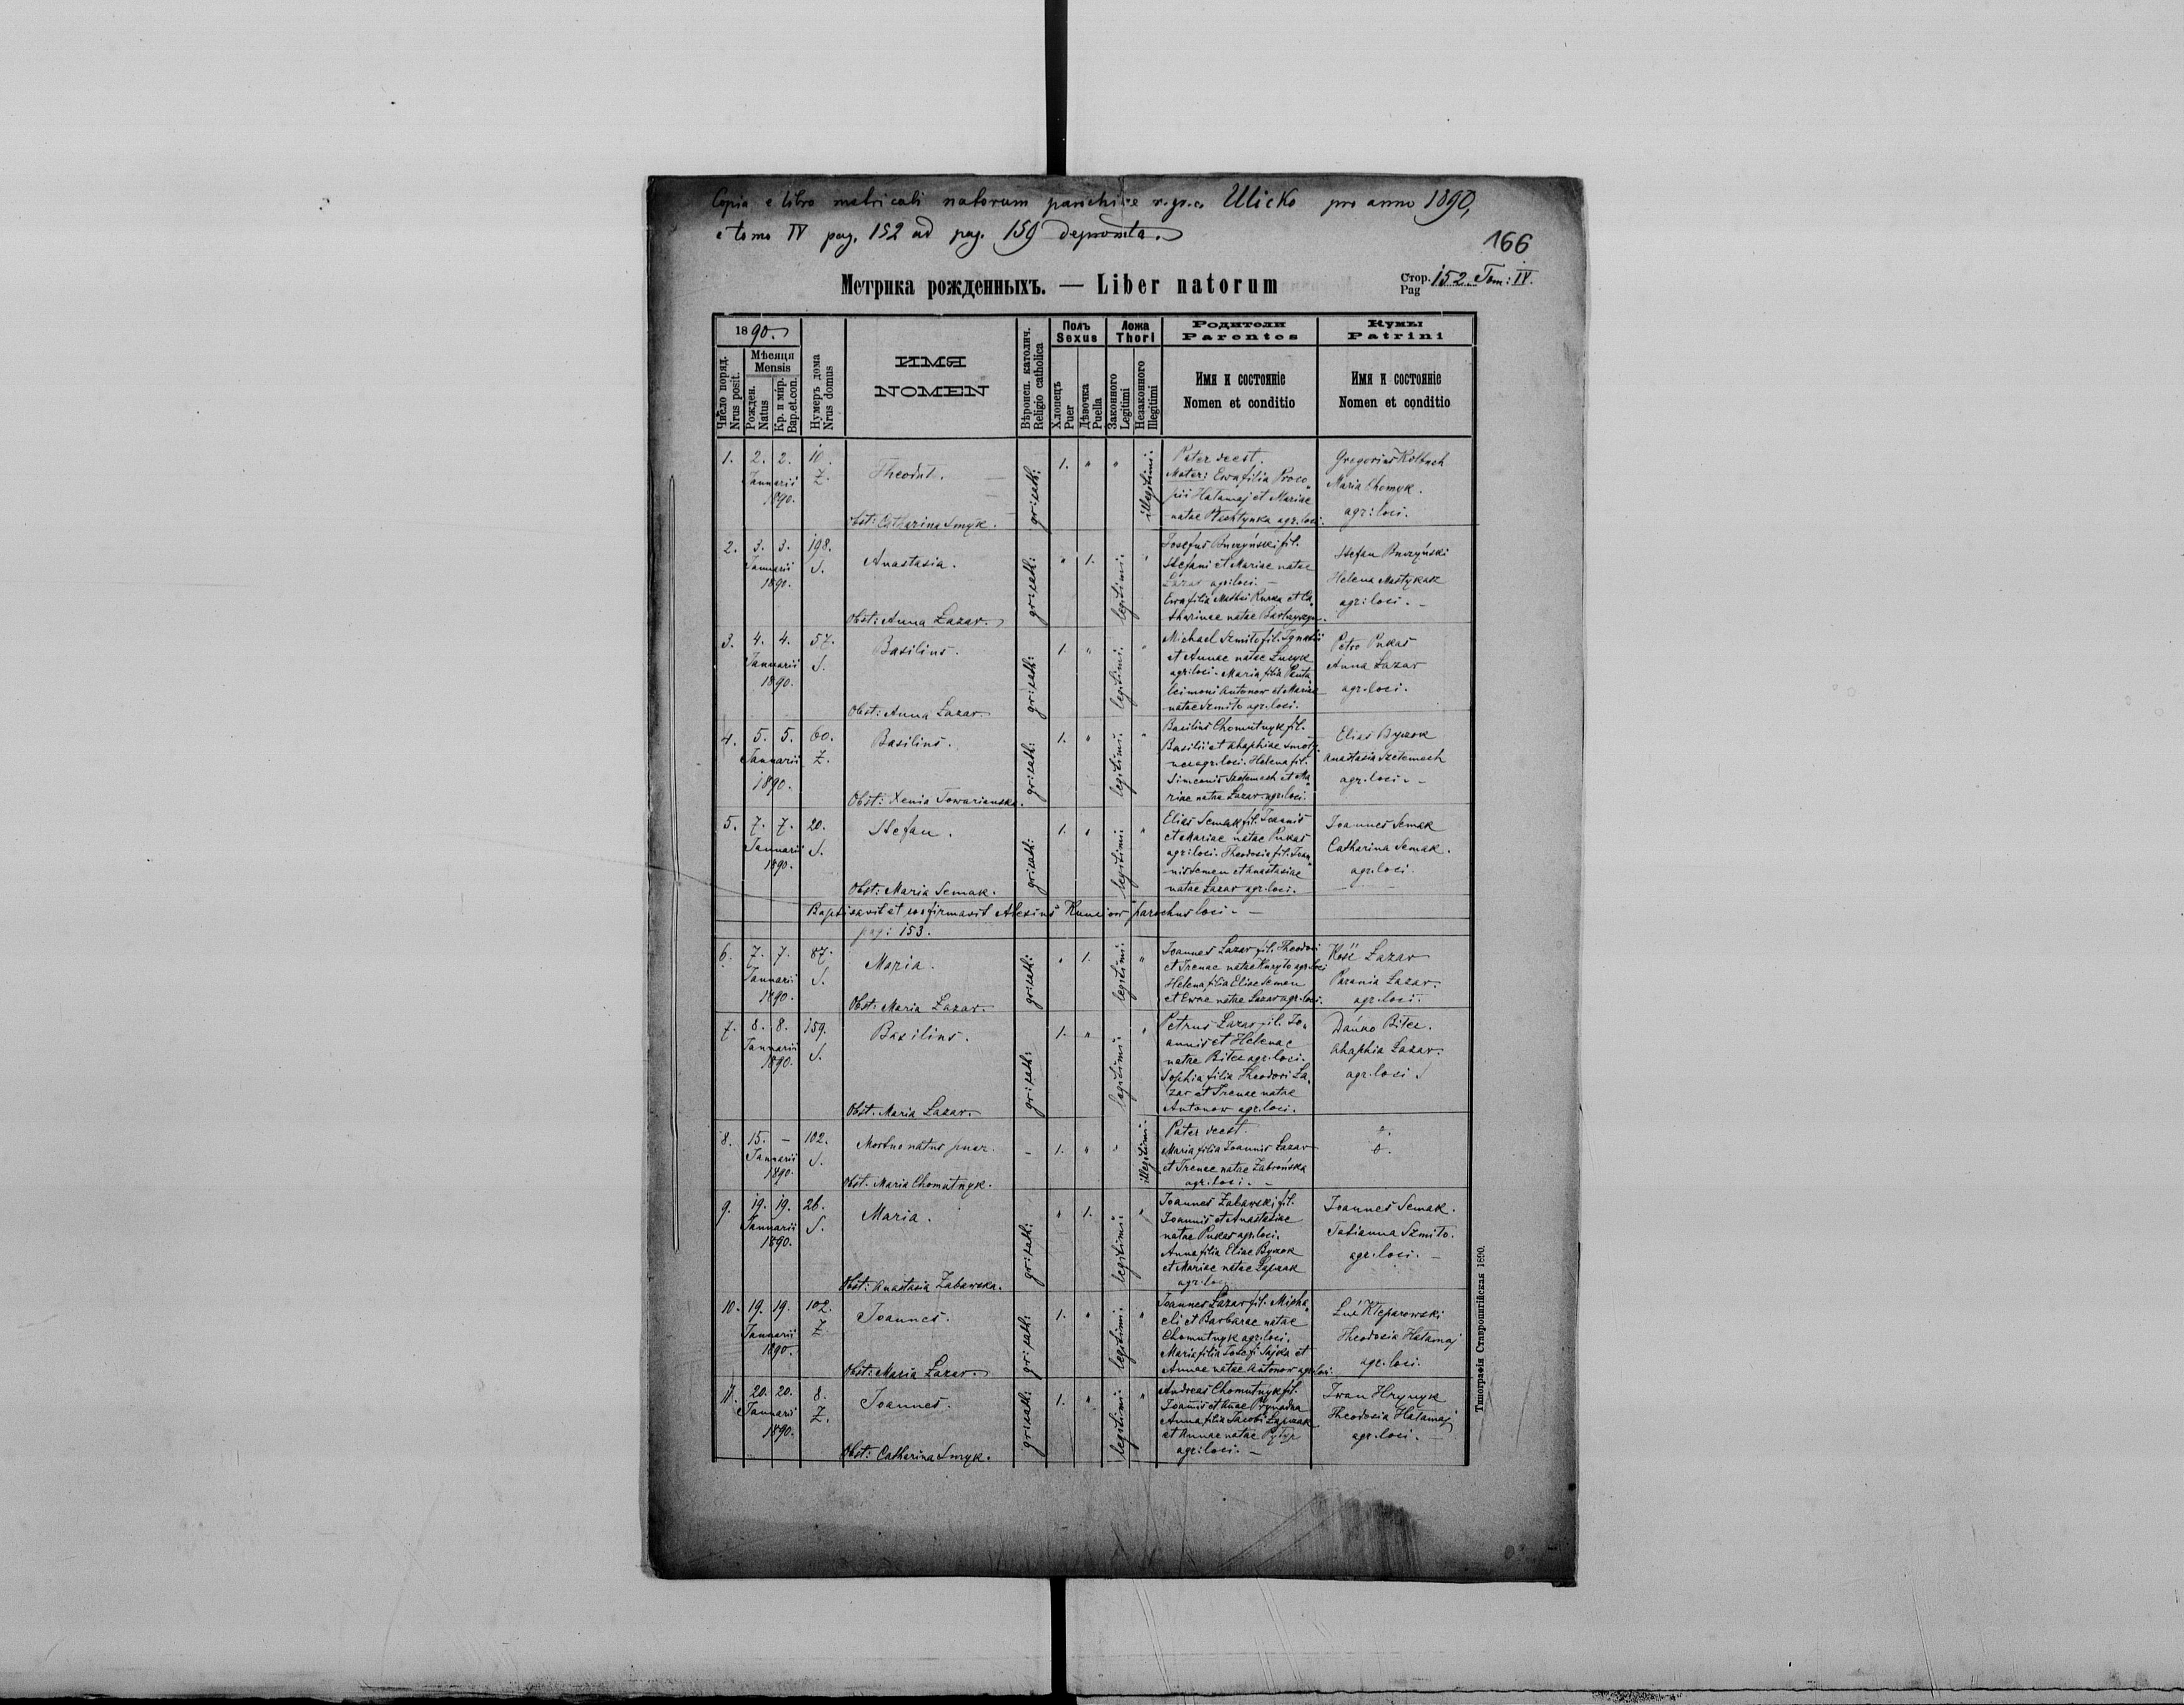 Copia e libro metricali natorum parichiæ r. gr. c. Ulicko pro anno 1890,
e tomo IV pag. 152 ad pag. 159 deprompta.
166
Метрика рожденныхъ. — Liber natorum
Стор. 152. Tom: IV.
Pag
1890.
Число поряд. Nrus posit.
Мѣсяця Mensis
Рожден. Natus
Кр. и мѵр. Bap.et.con.
Нумеръ дома Nrus domus
ИМЯ
NOMEN
Вѣроисп. католич. Religio catholica
Полъ Sexus
Хлопецъ Puer
Дѣвочка Puella
Ложа Thori
Законного Legitimi
Незаконного Illegitimi
Родители Parentes
Имя и состоянiе
Nomen et conditio
Кумы Patrini
Имя и состоянiе
Nomen et conditio
1. 2. 2. Januarii 1890. 10. Z.
Theodul.
Obst: Catharina Smyk.
gr: cath: 1. " " illegitimi.
Pater deest.
Mater: Ewa filia Proco-
pii Hatamaj et Mariae
natae agr. loci.
Gregorius
Maria Chomyk.
agr: loci.
2. 3. 3. Januarii 1890. 198. S.
Anastasia.
Obst: Anna Łazar.
gr: cath: " 1. legitimi. "
Josefus Buczyński fil.
Stefani et Mariae natae
Łazar agr. loci. –
Ewa filia Mathei Kurka et Ca-
tharinae natae
Stefan Buczyński
Helena
agr: loci. –
3. 4. 4. Januarii 1890. 57. S.
Basilius.
Obst: Anna Łazar.
gr: cath: 1. " legitimi. "
Michael Szmito fil. Ignatii
et Annae natae
agr. loci. Maria filia Panta-
leimoni Antonow et Mariae
natae Szmito agr. loci.
Petro Pukas
Anna Łazar
agr. loci.
4. 5. 5. Januarii 1890. 60. Z.
Basilius.
Obst: Xenia Towarianska.
gr: cath: 1. " legitimi. "
Basilius Chomutnyk fil.
Basilii et Ahaphiae
agr. loci. Helena fil.
Simeonis Szetemech et Ma-
riae natae Łazar agr. loci.
Elias Byczok
Anastasia Szetemech
agr. loci. –
5. 7. 7. Januarii 1890. 20. S.
Stefan.
Obst: Maria Semak.
gr: cath: 1. " legitimi: "
Elias Semak fil. Joannis
et Mariae natae Pukas
agr: loci. Theodosia fil. Joan-
nis Semen et Anastasiae
natae Łazar agr. loci.
Joannes Semak
Catharina Semak.
agr. loci.
Baptisavit et confirmavit Alexius parochus loci. –
pag: 153.
6. 7. 7. Januarii 1890. 87. S.
Maria.
Obst: Maria Łazar.
gr: cath: " 1. legitimi: "
Joannes Łazar fil. Theodori
et Irenae natae agr. loci
Helena filia Eliae Semen
et Ewae natae Łazar agr. loci.
Kość Łazar
Parania Łazar.
agr. loci.
7. 8. 8. Januarii 1890. 159. S.
Basilius.
Obst. Maria Łazar.
gr: cath: 1. " legitimi: "
Petrus Łazar fil. Jo-
annis et Helenae
natae Bitez agr. loci.
Sophia filia Theodori Ła-
zar et Irenae natae
Antonow agr. loci.
Dańko Bitez.
Ahaphia Łazar.
agr. loci.
8. 15. – Januarii 1890. 102. S.
Mortuo natus puer.
Obst. Maria Chomutnyk.
– 1. " " illegitimi.
Pater deest.
Maria filia Joannis Łazar
et Irenae natae
agr. loci. –
9. 19. 19. Januarii 1890. 26. S.
Maria.
Obst: Anastasia Zabawska.
gr: cath: " 1. legitimi: "
Joannes Zabawski fil.
Joannis et Anastasiae
natae Pukas agr. loci.
Anna filia Eliae Byczok
et Mariae natae Łapczak
agr. loci
Joannes Semak.
Tatianna Szmito.
agr. loci. –
10. 19. 19. Januarii 1890. 102. Z.
Joannes.
Obst: Maria Łazar.
gr: cath: 1. " legitimi: "
Joannes Łazar fil. Micha-
eli et Barbarae natae
Chomutnyk agr. loci.
Maria filia Josefi Sajka et
Annae natae Antonow agr. loci.
Luć Kleparowski
Theodosia Hatamaj
agr. loci.
11. 20. 20. Januarii 1890. 8. Z.
Joannes.
Obst: Catharina Smyk.
gr: cath: 1. " legitimi: "
Andreas Chomutnyk fil.
Joannis et Annae
Anna filia Jacobi Łapczak
et Annae natae
agr. loci. –
Iwan Hrynyk
Theodosia Hatamaj
agr. loci. –
Типографія Ставропигійская 1890.